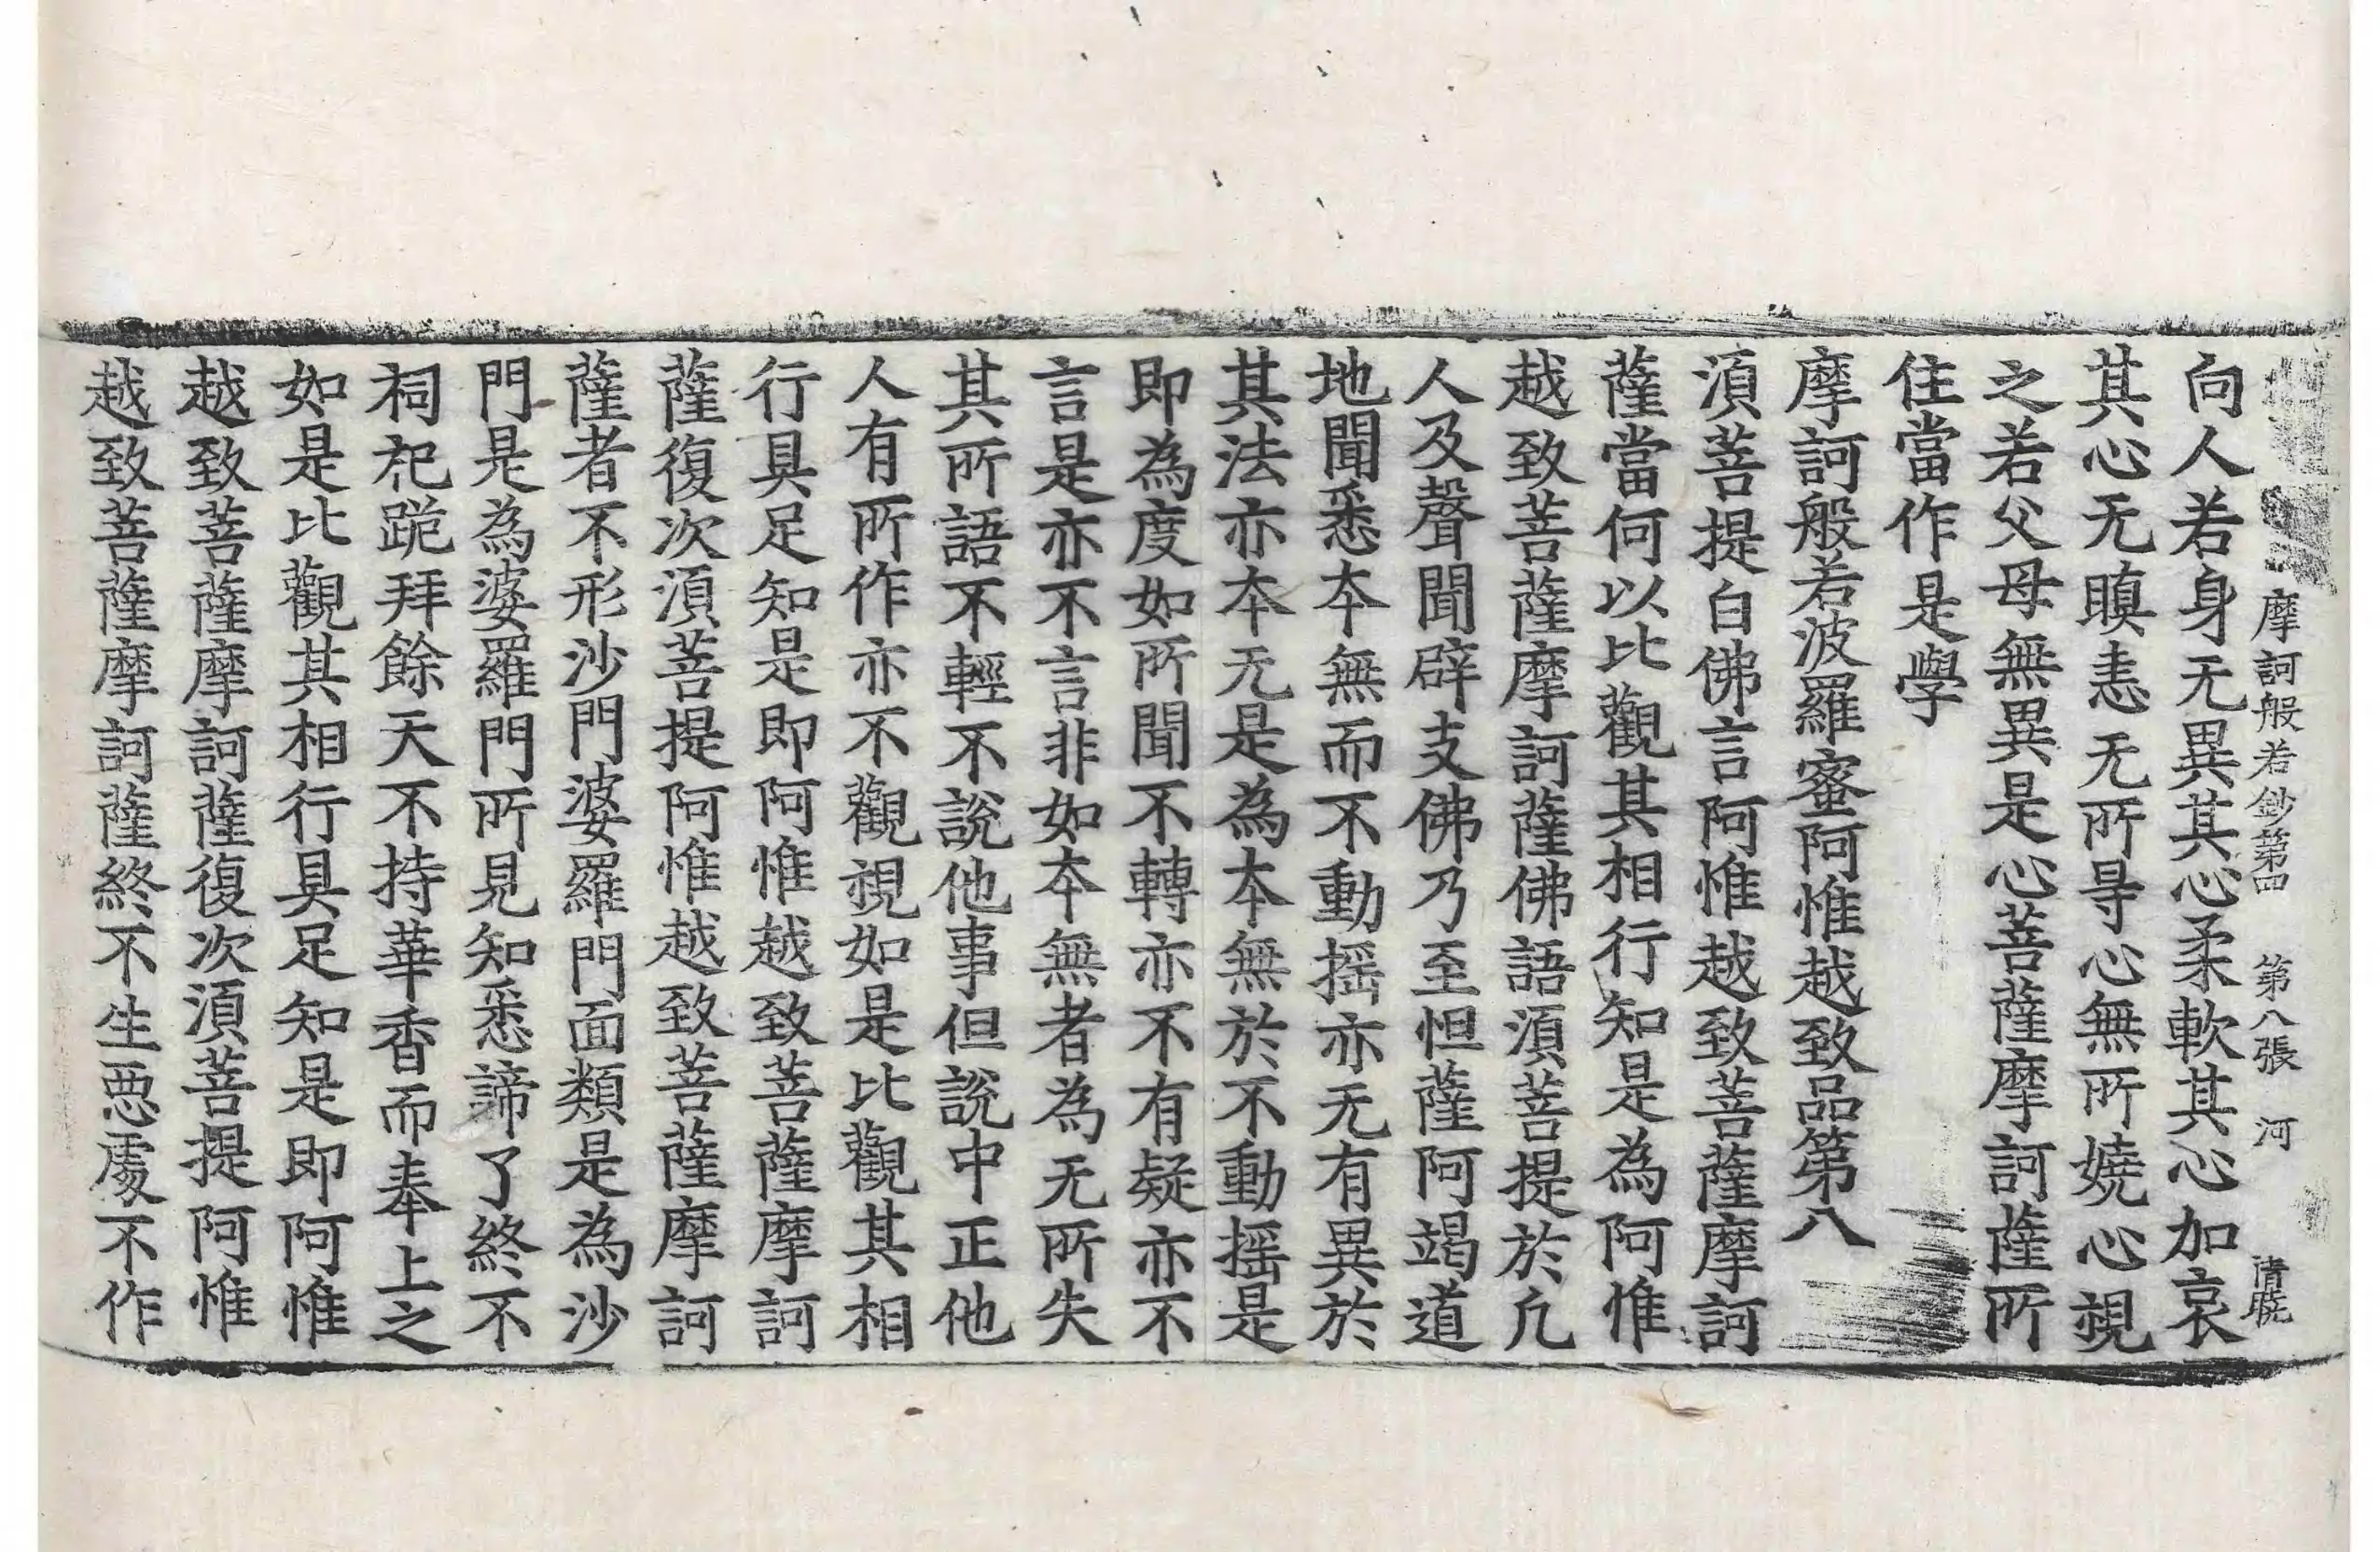 摩訶般若鈔第四 第八張 河
向人若身无異其心柔軟其心加哀
其心无瞋恚无所㝵心無所嬈心視
之若父母無異是心菩薩摩訶薩所
住當作是學
摩訶般若波羅蜜阿惟越致品第八
湏菩提白佛言阿惟越致菩薩摩訶
薩當何以比觀其相行知是為阿惟
越致菩薩摩訶薩佛語湏菩提於凢
人及聲聞辟支佛乃至怛薩阿竭道
地聞悉夲無而不動揺亦无有異於
其法亦夲无是為夲無於不動揺是
即為度如所聞不轉亦不有疑亦不
言是亦不言非如夲無者為无所失
其所語不輕不說他事但說中正他
人有所作亦不觀視如是比觀其相
行具足知是即阿惟越致菩薩摩訶
薩復次湏菩提阿惟越致菩薩摩訶
薩者不形沙門婆羅門面類是為沙
門是為婆羅門所見知悉諦了終不
祠祀跪拜餘天不持華香而奉上之
如是比觀其相行具足知是即阿惟
越致菩薩摩訶薩復次湏菩提阿惟
越致菩薩摩訶薩終不生惡處不作